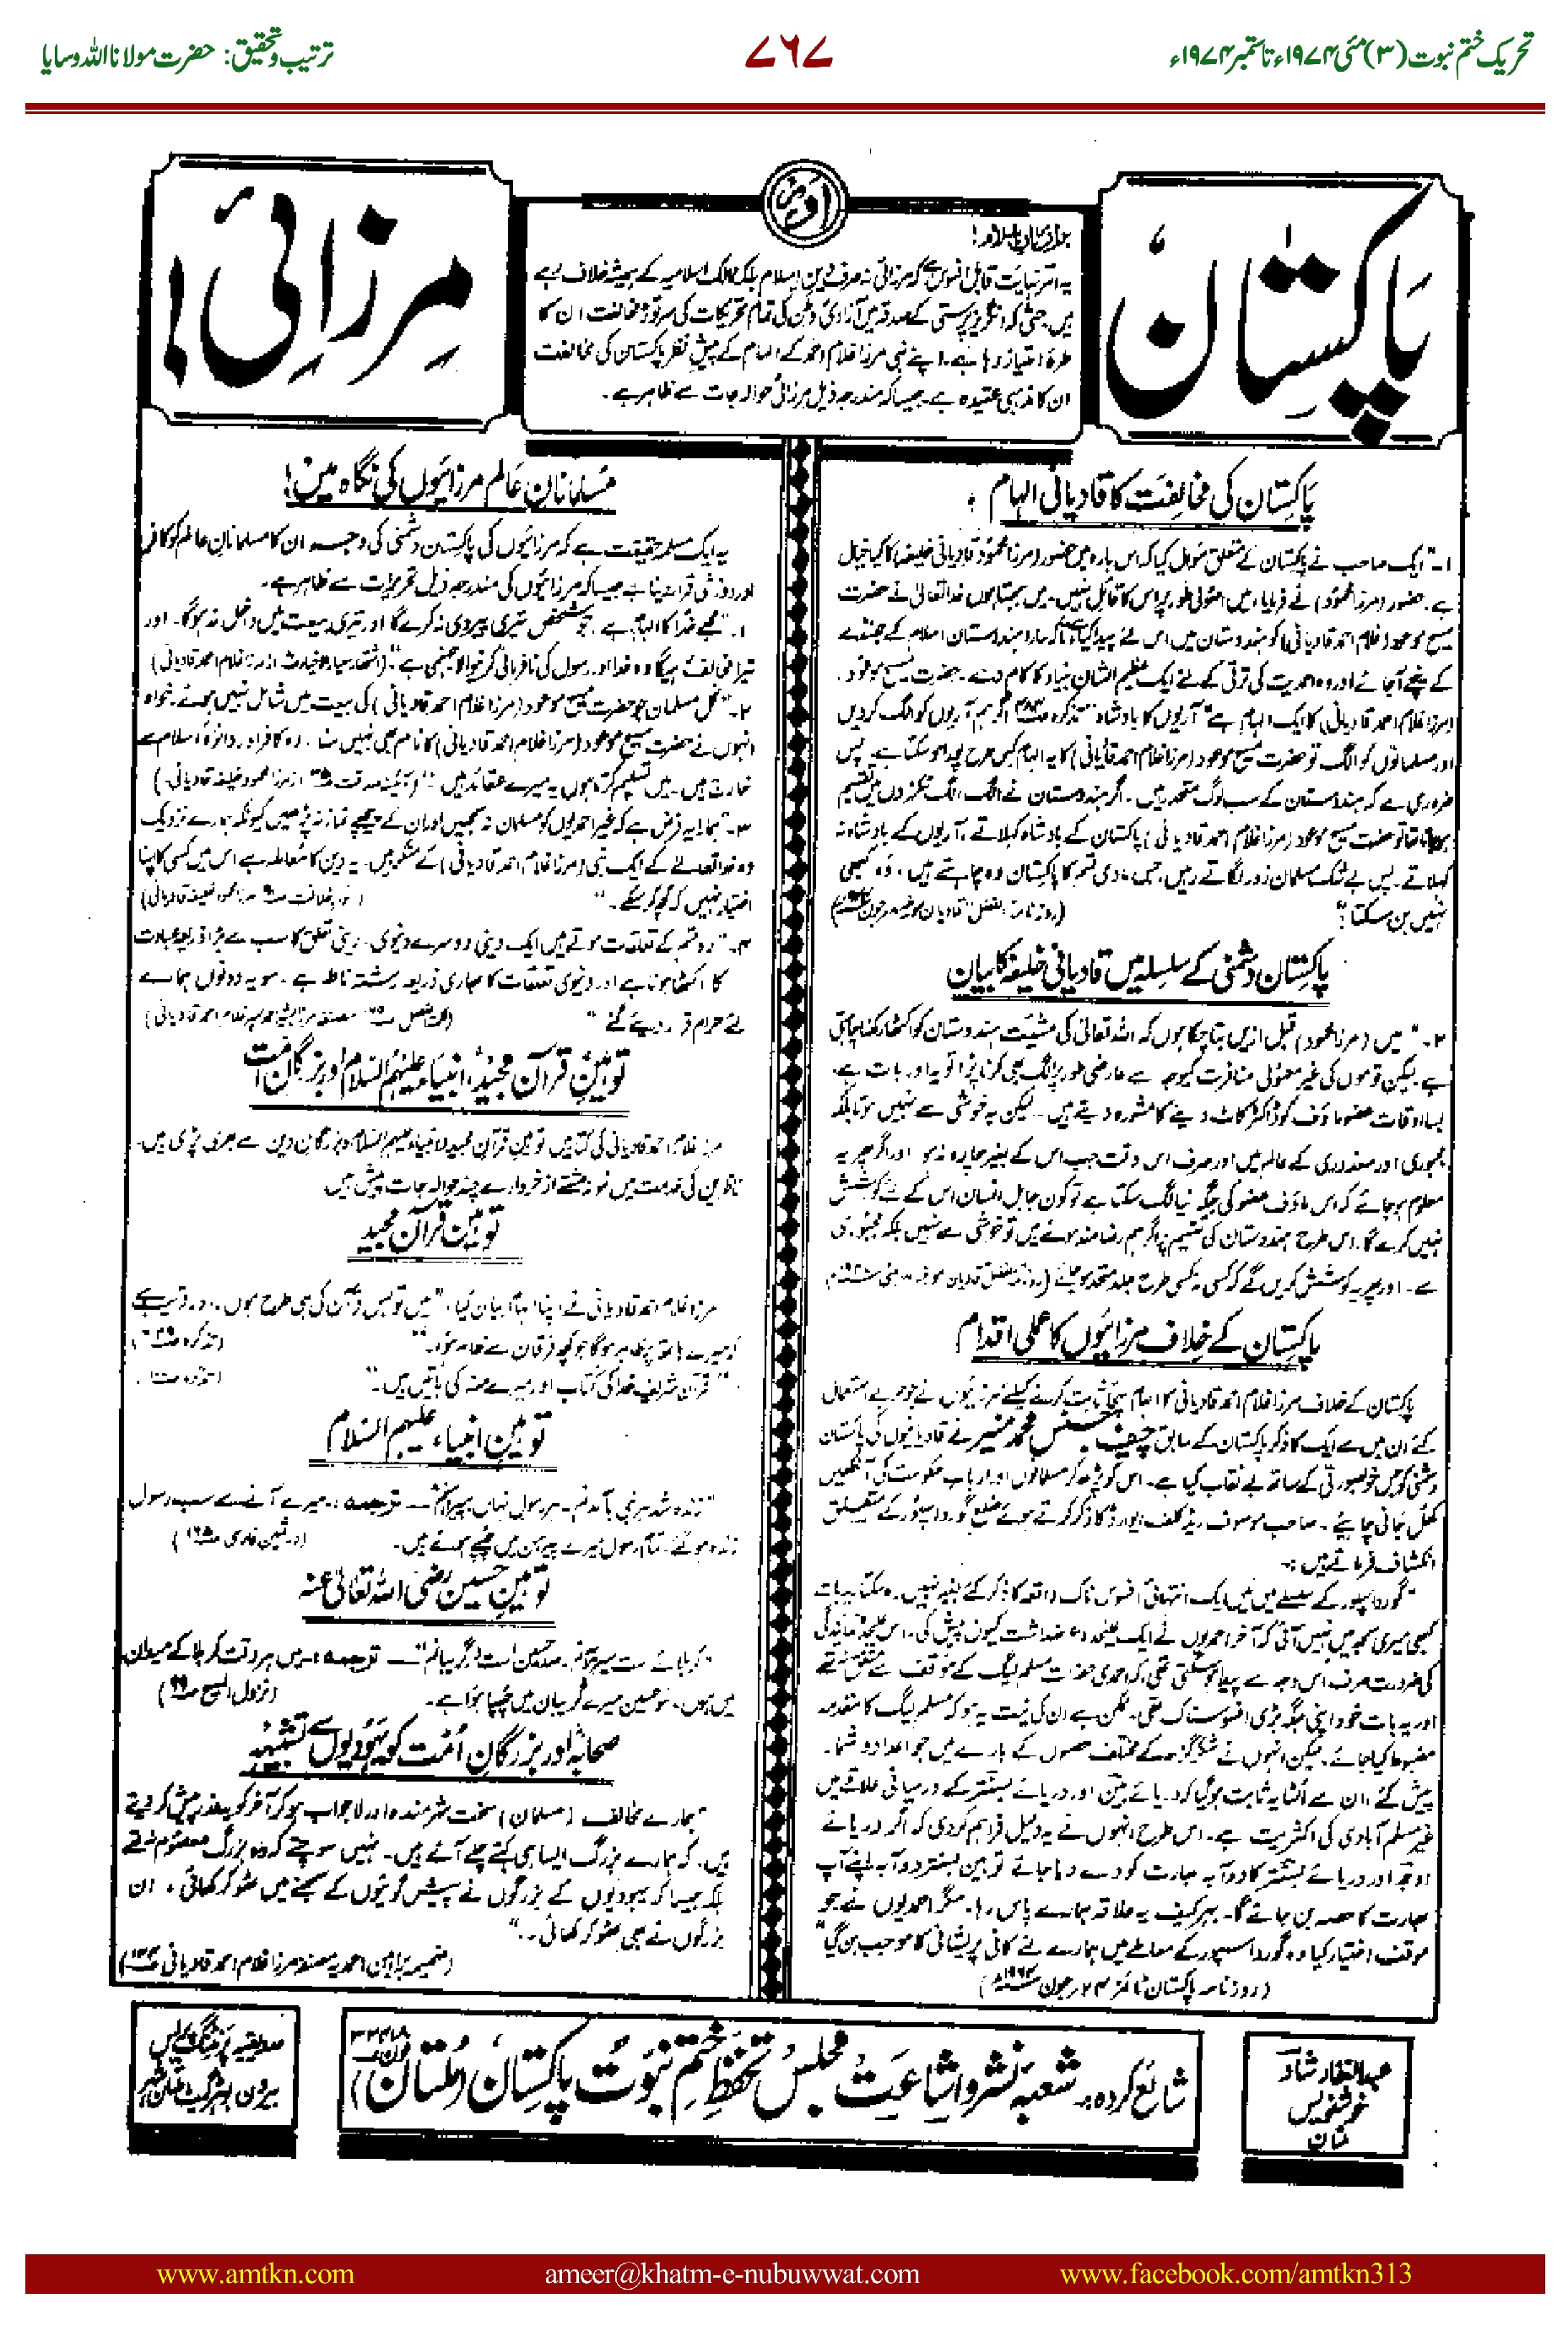 تحریک ختم نبوت (۳) مئی ۱۹۷۴ء تا ستمبر ۱۹۷۴ء
۷۶۷
ترتیب و تحقیق: حضرت مولانا اللہ وسایا
پاکستان
اور
مرزائی!
برادران اسلام!
یہ امر نہایت قابل افسوس ہے کہ مرزائی نہ صرف دین اسلام بلکہ ممالک اسلامیہ کے ہمیشہ خلاف رہے
ہیں حتیٰ کہ انگریز پرستی کے صدقہ میں آزادی وطن کی تمام تحریکات کی سرتوڑ مخالفت ان کا
طرۂ امتیاز رہا ہے۔ اپنے نبی مرزا غلام احمد کے الہام کے پیش نظر پاکستان کی مخالفت
ان کا مذہبی عقیدہ ہے۔ جیسا کہ مندرجہ ذیل مرزائی حوالہ جات سے ظاہر ہے۔
پاکستان کی مخالفت کا قادیانی الہام:
۱۔ "ایک صاحب نے پاکستان کے متعلق سوال کیا کہ اس بارہ میں حضور (مرزا محمود قادیانی خلیفہ) کا کیا خیال
ہے۔ حضور (مرزا محمود) نے فرمایا، میں اصولی طور پر اس کا قائل نہیں۔ میں سمجھتا ہوں خدا تعالیٰ نے حضرت
مسیح موعود (غلام احمد قادیانی) کو ہندوستان میں اس لئے پیدا کیا ہے تاکہ سارا ہندوستان اسلام کے جھنڈے
کے نیچے آجائے اور وہ احمدیت کی ترقی کے لئے ایک عظیم الشان بنیاد کا کام دے۔ حضرت مسیح موعود
(مرزا غلام احمد قادیانی) کا ایک الہام ہے "آریوں کا بادشاہ" تذکرہ اگر ہم آریوں کو الگ کر دیں
اور مسلمانوں کو الگ تو حضرت مسیح موعود (مرزا غلام احمد قادیانی) کا یہ الہام کس طرح پورا ہو سکتا ہے۔ پس
ضروری ہے کہ ہندوستان کے سب لوگ متحد رہیں۔ اگر ہندوستان نے الگ الگ ٹکڑوں میں تقسیم
ہو جانا تھا تو حضرت مسیح موعود (مرزا غلام احمد قادیانی) پاکستان کے بادشاہ کہلاتے، آریوں کے بادشاہ نہ
کہلاتے۔ پس بے شک مسلمان زور لگاتے رہیں، جس مادی قسم کا پاکستان وہ چاہتے ہیں، وہ کبھی
نہیں بن سکتا؟" (روزنامہ الفضل قادیان
پاکستان دشمنی کے سلسلہ میں قادیانی خلیفہ کا بیان
۲۔ "میں (مرزا محمود) قبل ازیں بتا چکا ہوں کہ اللہ تعالیٰ کی مشیت ہندوستان کو اکٹھا رکھنا چاہتی
ہے لیکن قوموں کی غیر معمولی منافرت کی وجہ سے عارضی طور پر الگ بھی کرنا پڑا تو یہ اور بات ہے۔
بسا اوقات عضو ماؤف کو ڈاکٹر کاٹ دینے کا مشورہ دیتے ہیں۔ لیکن یہ خوشی سے نہیں ہوتا بلکہ
مجبوری اور معذوری کے عالم میں اور صرف اس وقت جب اس کے بغیر چارہ نہ ہو اور اگر پھر یہ
معلوم ہو جائے کہ اس ماؤف عضو کی جگہ نیا لگ سکتا ہے تو کون جاہل انسان اس کے لئے کوشش
نہیں کرے گا۔ اس طرح ہندوستان کی تقسیم پر اگر ہم رضامند ہوئے ہیں تو خوشی سے نہیں بلکہ مجبوری
سے۔ اور پھر یہ کوشش کریں گے کہ کسی نہ کسی طرح جلد متحد ہو جائے (روزنامہ الفضل قادیان
پاکستان کے خلاف مرزائیوں کا عملی اقدام
پاکستان کے خلاف مرزا غلام احمد قادیانی کا الہام سچا ثابت کرنے کیلئے مرزائیوں نے جو حربے استعمال
کئے ان میں سے ایک کا ذکر پاکستان کے سابق چیف جسٹس محمد منیر نے قادیانیوں کی پاکستان
دشمنی کو جس خوبصورتی کے ساتھ بے نقاب کیا ہے۔ اس کو پڑھ کر مسلمانوں اور ارباب حکومت کی آنکھیں
کھل جانی چاہیئے۔ صاحب موصوف ریڈ کلف ایوارڈ کا ذکر کرتے ہوئے ضلع گورداسپور کے متعلق
انکشاف فرماتے ہیں:۔
"گورداسپور کے سلسلے میں میں ایک انتہائی افسوس ناک واقعہ کا ذکر کئے بغیر نہیں رہ سکتا یہ بات
کبھی میری سمجھ میں نہیں آئی کہ آخر احمدیوں نے ایک علیحدہ عرضداشت کیوں پیش کی۔ اس علیحدہ نمائندگی
کی ضرورت صرف اس وجہ سے پیدا ہو سکتی تھی کہ احمدی حضرات مسلم لیگ کے مؤقف سے متفق نہ تھے
اور یہ بات خود اپنی جگہ بڑی افسوسناک تھی۔ ممکن ہے ان کی نیت یہ ہو کہ مسلم لیگ کا مقدمہ
مضبوط کیا جائے۔ لیکن انہوں نے شکر گڑھ کے مختلف حصوں کے بارے میں جو اعداد و شمار
پیش کئے، ان سے الٹا یہ ثابت ہو گیا کہ دریائے بین اور دریائے بسنتر کے درمیانی علاقے میں
غیر مسلم آبادی کی اکثریت ہے۔ اس طرح انہوں نے یہ دلیل فراہم کر دی کہ اگر دریائے
اوجھ اور دریائے بسنتر کا دوآبہ بھارت کو دے دیا جائے تو بین بسنتر دوآبہ اپنے آپ
بھارت کا حصہ بن جائے گا۔ بہرکیف یہ علاقہ ہمارے پاس رہا۔ مگر احمدیوں نے جو
موقف اختیار کیا وہ گورداسپور کے معاملے میں ہمارے لئے کافی پریشانی کا موجب بن گیا"
(روزنامہ پاکستان ٹائمز ۲۴ جون ۱۹۶۴ء)
مسلمانان عالم مرزائیوں کی نگاہ میں!
یہ ایک مسلمہ حقیقت ہے کہ مرزائیوں کی پاکستان دشمنی کی وجہ ان کا مسلمانان عالم کو کافر
اور دوزخی قرار دینا ہے جیسا کہ مرزائیوں کی مندرجہ ذیل تحریرات سے ظاہر ہے۔
۱۔ "مجھے خدا کا الہام ہے۔ جو شخص تیری پیروی نہ کرے گا اور تیری بیعت میں داخل نہ ہوگا۔ اور
تیرا مخالف رہیگا وہ خدا اور رسول کی نافرمانی کرنیوالا جہنمی ہے" (اشتہار معیار الاخیار از مرزا غلام احمد قادیانی)
۲۔ "کل مسلمان جو حضرت مسیح موعود (مرزا غلام احمد قادیانی) کی بیعت میں شامل نہیں ہوئے۔ خواہ
انہوں نے حضرت مسیح موعود (مرزا غلام احمد قادیانی) کا نام بھی نہیں سنا۔ وہ کافر اور دائرہ اسلام سے
خارج ہیں۔ میں تسلیم کرتا ہوں یہ میرے عقائد ہیں"۔ (آئینہ صداقت از مرزا محمود خلیفہ قادیانی)
۳۔ "ہمارا یہ فرض ہے کہ غیر احمدیوں کو مسلمان نہ سمجھیں اور ان کے پیچھے نماز نہ پڑھیں کیونکہ ہمارے نزدیک
وہ خدا تعالیٰ کے ایک نبی (مرزا غلام احمد قادیانی) کے منکر ہیں۔ یہ دین کا معاملہ ہے اس میں کسی کا اپنا
اختیار نہیں کہ کچھ کر سکے۔" (انوار خلافت مرزا محمود خلیفہ قادیانی)
۴۔ "دو قسم کے تعلقات ہوتے ہیں ایک دینی دوسرے دنیوی۔ دینی تعلق کا سب سے بڑا ذریعہ عبادت
کا اکٹھا ہونا ہے اور دنیوی تعلقات کا بھاری ذریعہ رشتہ ناطہ ہے۔ سو یہ دونوں ہمارے
لئے حرام قرار دیئے گئے" (کلمۃ الفصل مصنفہ مرزا بشیر احمد پسر غلام احمد قادیانی)
توہین قرآن مجید، انبیاء علیہم السلام اور بزرگان امت
مرزا غلام احمد قادیانی کی کتابیں توہین قرآن مجید، انبیاء علیہم السلام و بزرگان دین سے بھری پڑی ہیں۔
ناظرین کی خدمت میں نمونہ مشتے از خروارے چند حوالہ جات پیش ہیں۔
توہین قرآن مجید
مرزا غلام احمد قادیانی نے اپنا الہام بیان کیا۔ "میں تو بس قرآن کی ہی طرح ہوں۔ اور قریب ہے
کہ میرے ہاتھ پر ظاہر ہوگا جو کچھ فرقان سے ظاہر ہوا۔" (تذکرہ
"قرآن شریف خدا کی کتاب اور میرے منہ کی باتیں ہیں۔" (تذکرہ
توہین انبیاء علیہم السلام
"زندہ شد ہر نبی بآمدنم۔ ہر رسول نہاں بہ پیراہنم"۔ ترجمہ: میرے آنے سے سب رسول
زندہ ہو گئے۔ تمام رسول میرے پیرہن میں چھپے ہوئے ہیں۔ (درثمین فارسی
توہین حسین رضی اللہ تعالیٰ عنہ
"کربلائے است سیر ہر آنم۔ صد حسین است در گریبانم"۔ ترجمہ: میں ہر وقت کربلا کے میدان
میں ہوں۔ سو حسین میرے گریبان میں چھپا ہوا ہے۔ (نزول المسیح
صحابہ اور بزرگان امت کو یہودیوں سے تشبیہ
"ہمارے مخالف (مسلمان) سخت شرمندہ اور لاجواب ہو کر آخر کو یہ عذر پیش کر دیتے
ہیں۔ کہ ہمارے بزرگ ایسا ہی کہتے چلے آئے ہیں۔ نہیں سوچتے کہ وہ بزرگ معصوم نہ تھے
بلکہ جیسا کہ یہودیوں کے بزرگوں نے پیشگوئیوں کے سمجھنے میں ٹھوکر کھائی، ان
بزرگوں نے بھی ٹھوکر کھائی۔" (ضمیمہ براہین احمدیہ مصنفہ مرزا غلام احمد قادیانی
عبدالغفار شاد
خوشنویس
ملتان
شائع کردہ:۔ شعبہ نشر و اشاعت مجلس تحفظ ختم نبوت پاکستان (ملتان)
صدیقیہ پرنٹنگ پریس
بیرون بوہڑ گیٹ ملتان شہر
www.amtkn.com ameer@khatm-e-nubuwwat.com www.facebook.com/amtkn313